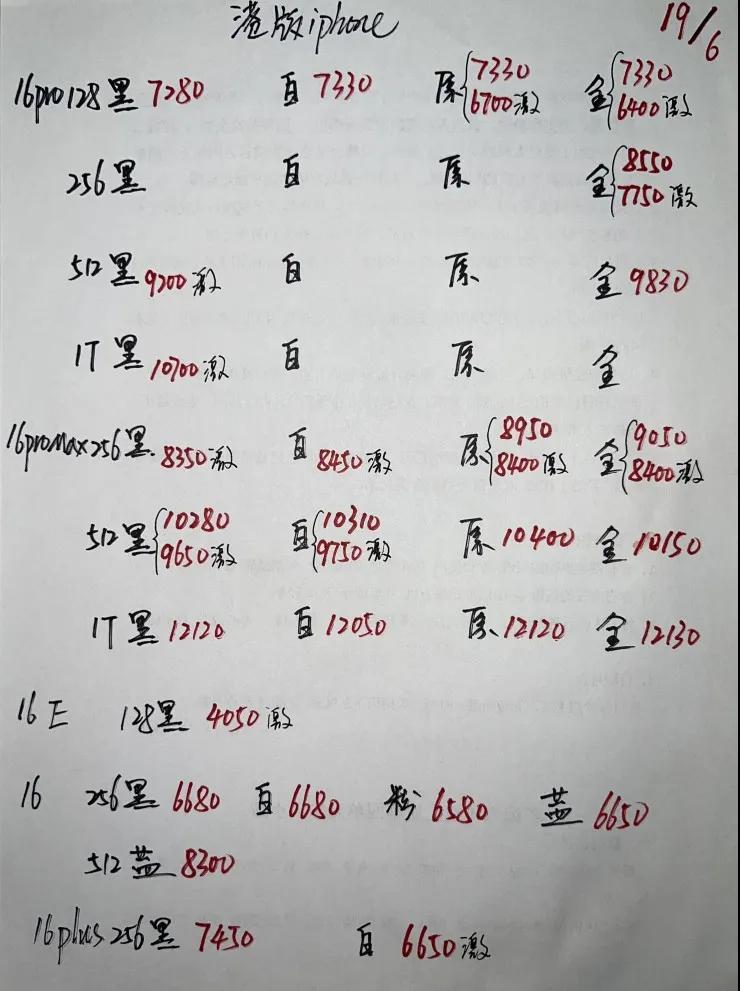 港版iphone 19/6
16pro128黑7280 白7330 原{7330 6700激 金{7330 6400激
256黑 白 原 金{8550 7750激
512黑9200激 白 原 金9830
1T黑10700激 白 原 金
16promax256黑.8350激 白8450激 原{8950 8400激 金{9050 8400激
512黑{10280 9650激 白{10310 9750激 原10400 金10150
1T黑12120 白12050 原12120 金12130
16E 128黑4050激
16 256黑6680 白6680 粉6580 蓝6650
512蓝8300
16plus256黑7450 白6650激